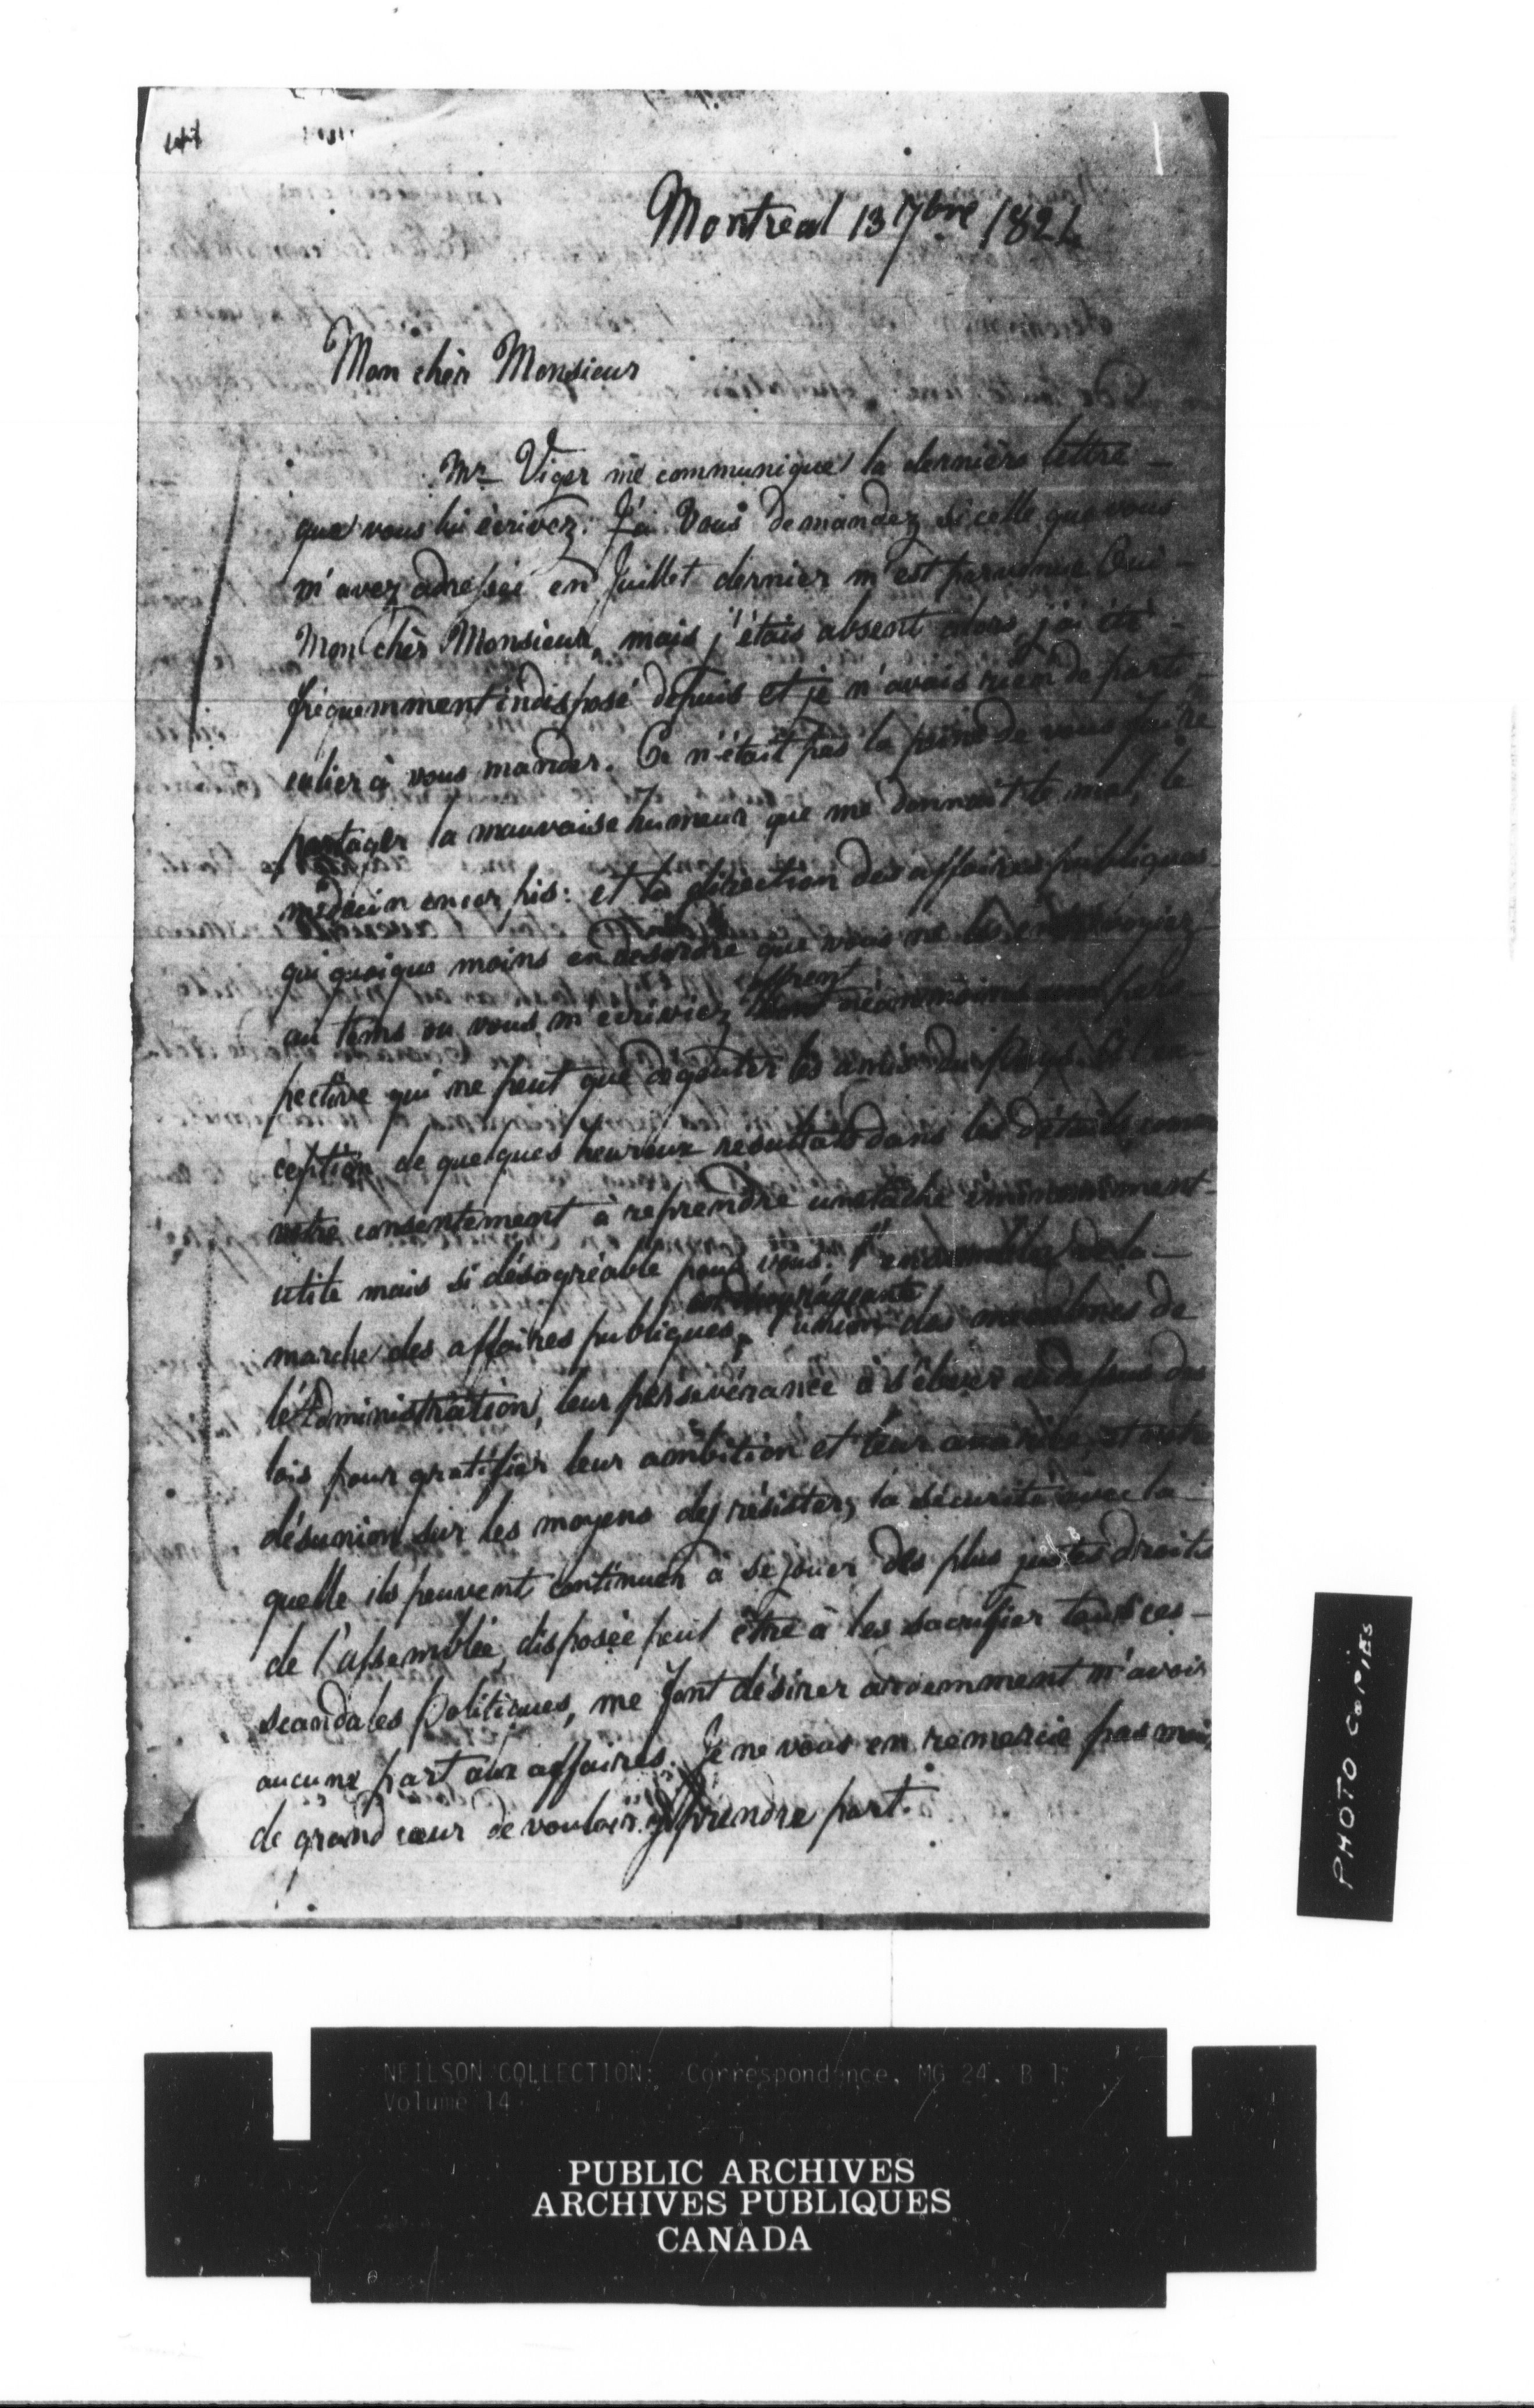 Montreal 13 7bre 1824
Mon chèr Monsieur
Mr Viger me communique la dernière lettre –
que vous lui écrivez. Là Vous demandez si celle que vous
m'avez adressée en Juillet dernier m'est parvenue Oui –
Mon Chèr Monsieur, mais j'étais absent alors, j'ai été –
fréquemment indisposé depuis et je n'avais rien de parti
culier à vous mander. Ce n'était pas la peine de vous faire
partager la mauvaise humeur que me donnait le mal, le
médecin encor pis: et la direction des affaires publiques
qui quoique moins en desordre que vous ne les envisagiez
offrent
au tems ou vous m'écriviez néanmoins une pers
pective qui ne peut que dégouter les amis du pays. A l'ex
ception de quelques heureux resultats dans les détails, comme
votre consentement à reprendre une tâche éminemment
utile mais si désagréable pour vous. l'ensemble de la –
marche des affaires publiques, l'union des membres de
décourageante
l'Administration, leur perseverance à s'élever au dessus des
lois pour gratifier leur ambition et leur avarice, et notre
désunion sur les moyens d'y résister, la sécurité avec la
quelle ils peuvent continuer à se jouer des plus justes droits
de l'assemblée, disposée peut être à les sacrifier tous ces –
scandales politiques, me font désirer ardemment n'avoir
aucune part aux affaires. Je ne vous en remercie pas moins
de grand cœur de vouloir y prendre part.
PHOTO COPIES
NEILSON COLLECTION: Correspondence, MG 24, B 1,
Volume 14
PUBLIC ARCHIVES
ARCHIVES PUBLIQUES
CANADA